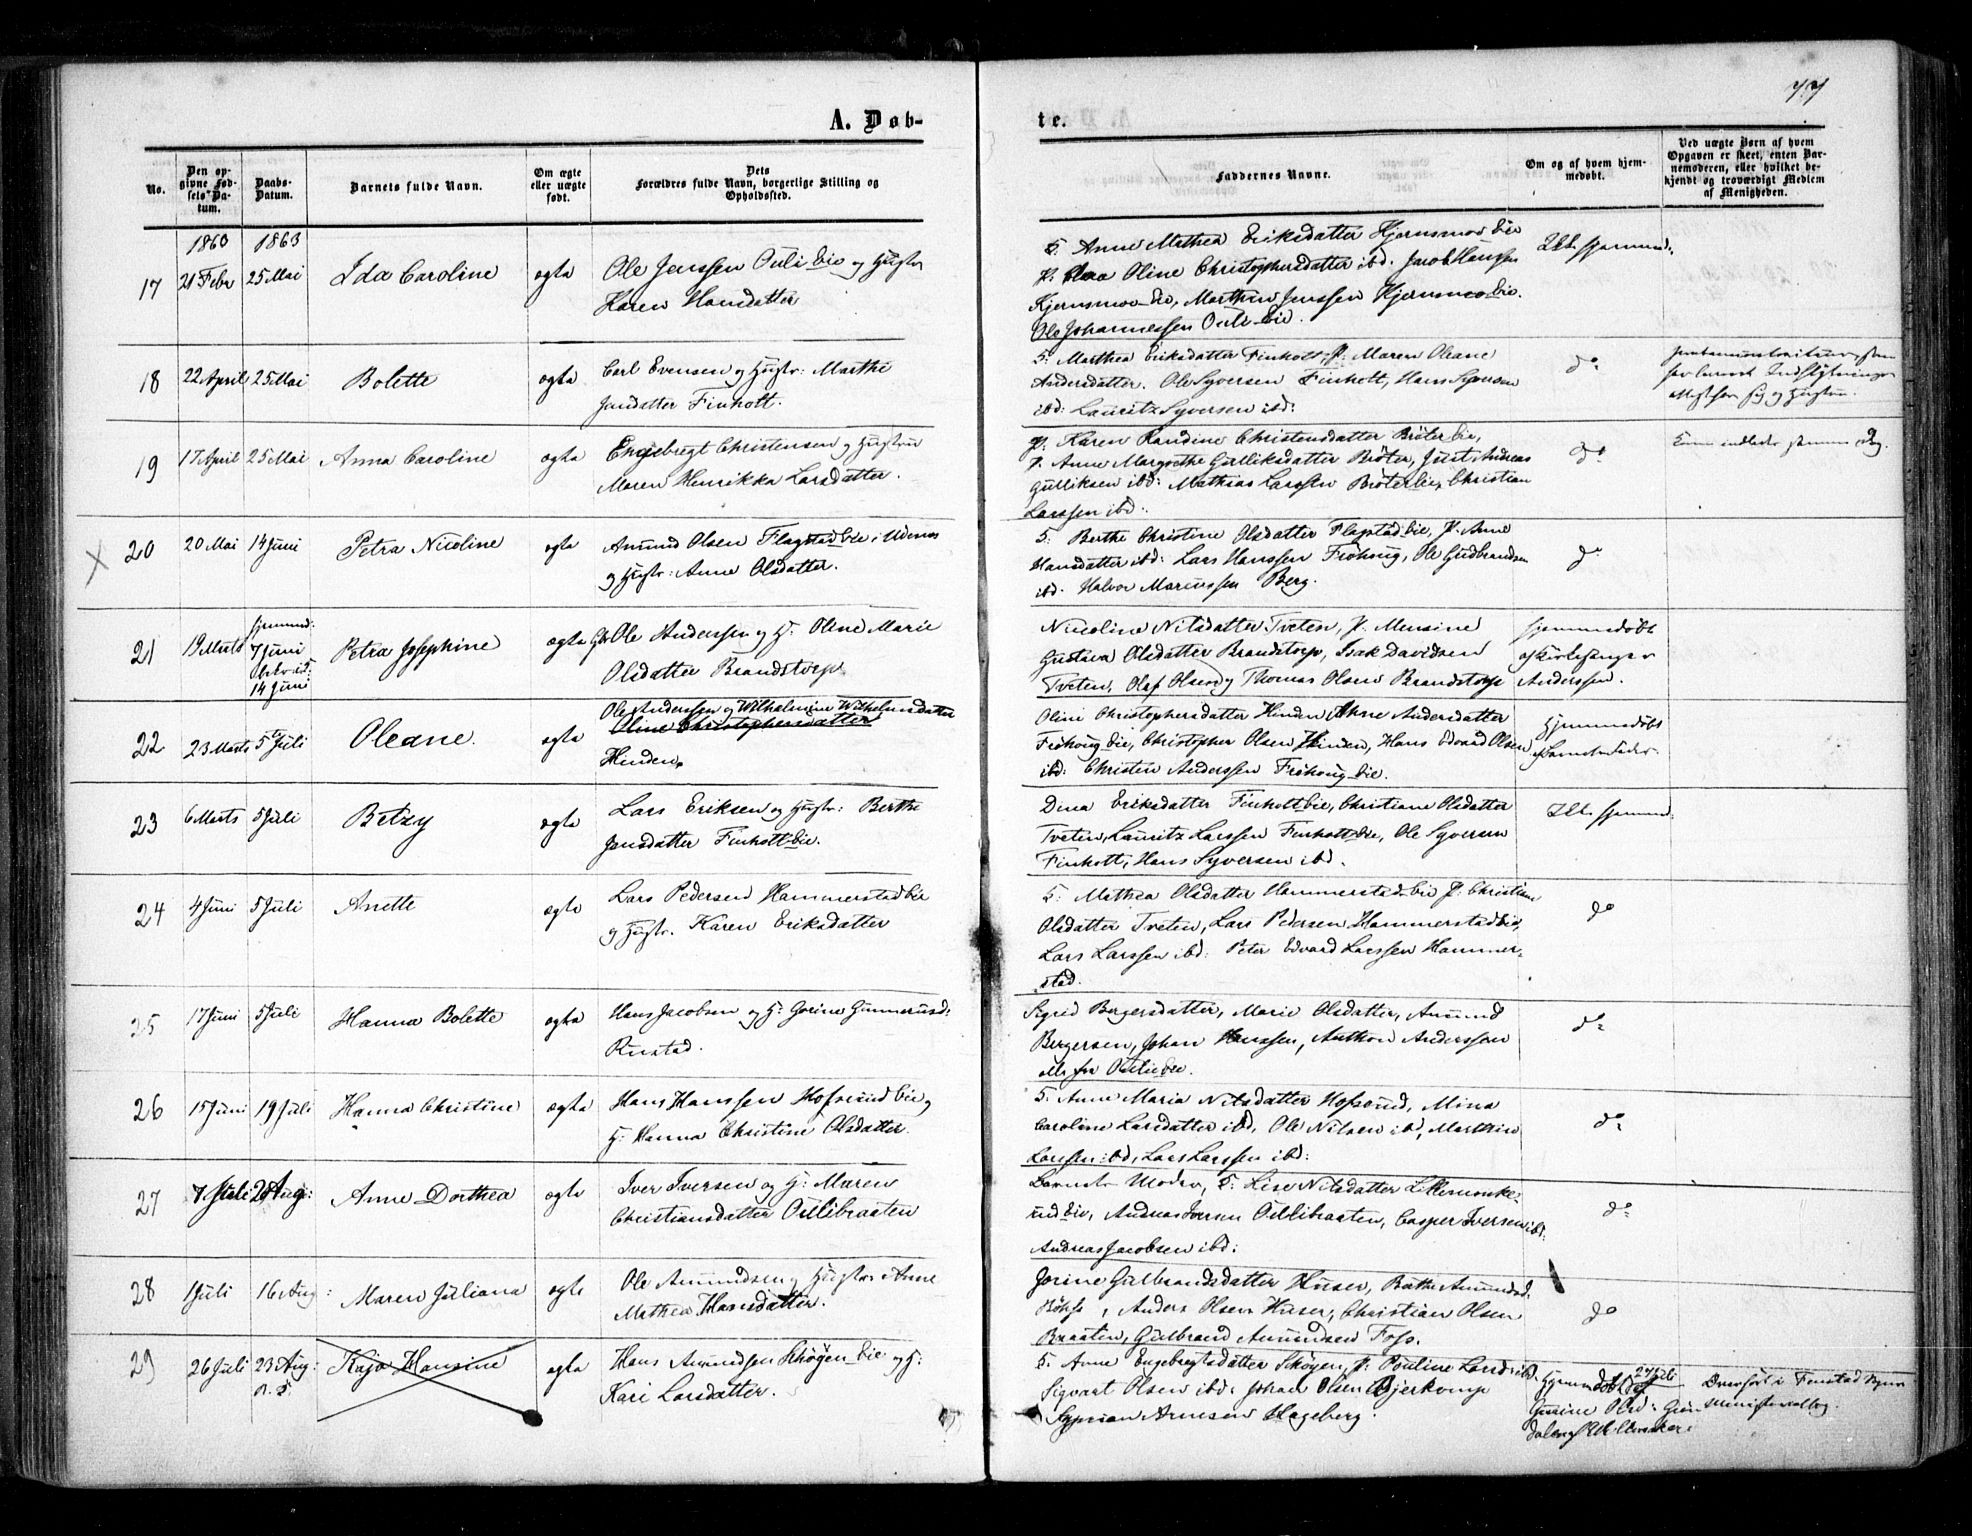 77
A. Døb-
te.
No.
Den op-
givne Fød-
sels-Da-
tum.
Daabs-
Datum.
Barnets fulde Navn.
Om ægte
eller uægte
født.
Dets
Forældres fulde Navn, borgerlige Stilling og
Opholdssted.
Faddernes Navne.
Om og af hvem hjem-
medøbt.
Ved uægte Børn af hvem
Opgaven er skeet, enten Bar-
nemoderen, eller hvilket be-
kjendt og troværdigt Medlem
af Menigheden.
1863 1863
17 21 Febr 25 Mai Ida Caroline ægte
Ole Jenssen Ouli bie og Hustr
Karen Hansdatter
5. Anne Mathea Eriksdatter Hjernsmoe bie
P. Oline Christophersdatter ibd. Jacob Hansen
Kjernsmoe bie, Marthin Jenssen Kjernsmoebie.
Ole Johannessen Ouli bie.
18 22 April 25 Mai Bolette ægte
Carl Evensen og Hustr: Marthe
Jensdatter Finholt.
5. Marthea Eriksdatter Finholt, P. Maren Oleane
Andersdatter. Ole Syversen Finholt, Hans Syversen
ibd: Lauritz Syversen ibd:
do
19 17 April 25 Mai Anna Caroline ægte
Engebregt Christensen og Hustru
Maren Henrikka Larsdatter.
P. Karen Randine Christensdatter Brøter bie,
P. Anne Margrethe Gulliksdatter Brøter, Just Andreas
Gulliksen ibd: Mathias Larssen Brøterbie, Christian
Larssen ibd.
do
20 20 Mai 14 Juni Petra Nicoline ægte
Amund Olsen Flagstadbie i Udenes
og Hustr: Anne Olsdatter.
5. Berthe Christine Olsdatter Flagstadbie, P. Anne
Hansdatter ibd: Lars Hanssen Frøhoug, Ole Gudbrandsen
ibd. Halvor Mariussen Berg.
do
21 19 Marts 7 Juni
14 Juni
Petra Josephine ægte
Ole Anderssen og H. Oline Marie
Olsdatter Brandstorp
Nicoline Nilsdatter Tveten, P. Mensine
Gustava Olsdatter Brandstorp, Isak Davidsen
Tveten, Olaf Olsen og Thomas Olsen Brandstorp
hjemmedøbt
af Kirkesanger
Anderssen.
22 23 Marts 5 Juli Oleane. ægte
Ole Anderssen og Wilhelmine Wilhelmsdatter
Oline Christophersdatter
Hinden.
Oline Christophersdatter Hinden, Anne Andersdatter
Frøhougbie, Christopher Olsen Hinden, Hans Edvard Olsen
ibd: Christen Anderssen Frøhougbie.
hjemmedøbt
23 6 Marts 5 Juli Betzy ægte
Lars Eriksen og Hustr: Berthe
Jensdatter Finholtbie.
Dina Eriksdatter Finholtbie, Christiane Olsdatter
Tveten, Lauritz Larssen Finholtbie, Ole Syversen
Finholt, Hans Syversen ibd.
24 4 Juni 5 Juli Anette ægte
Lars Pedersen Hammerstadbie
og Hustr. Karen Eriksdatter
5. Mathea Olsdatter Hammerstadbie P. Christiane
Olsdatter Tveten, Lars Pedersen Hammerstadbie,
Lars Larssen ibd: Peter Edvard Larssen Hammer-
stad.
do
25 17 Juni 5 Juli Hanna Bolette ægte
Hans Jacobsen og H: Gorine Gunnerusd:
Rustad.
Sigrid Bergersdatter, Marie Olsdatter, Amund
Bergersen, Johan Hanssen, Anthon Anderssen
alle fra Oulibie.
do
26 15 Juni 19 Juli Hanna Christine ægte
Hans Hanssen Hofsund bie og
H: Hanna Christine Olsdatter.
5. Anne Maria Nilsdatter Hofsund, Mina
Caroline Larsdatter ibd, Ole Nilsen ibd, Marthin
Larssen ibd, Lars Larssen ibd:
do
27 7 Juli 2 Aug: Anne Dorthea ægte
Iver Iversen og H: Maren
Christiansdatter Oulibraaten
Barnets Moder, 5. Lise Nilsdatter Lillemonke-
rudbie, Andreas Iversen Oulibraaten, Casper Iversen ibd:
Andreas Jacobsen ibd:
do
28 1 Juli 16 Aug: Maren Juliana ægte
Ole Amundsen og Hustr. Anne
Mathea Hansdatter.
Jorine Gulbrandsdatter Huser, Berthe Amundsd.
Anders Olsen Huser, Christian Olsen
Braaten, Gulbrand Amundsen Foss.
do
29 26 Juli 23 Aug: Kaja Hansine ægte
Hans Amundsen Skøyen bie og H:
Kari Larsdatter.
5. Anne Engebregtsdatter Skøyen, P. Pauline Larsd ibd.
Sigvart Olsen ibd: Johan Olsen Bjerkemp
Syprian Arnesen Hageberg.